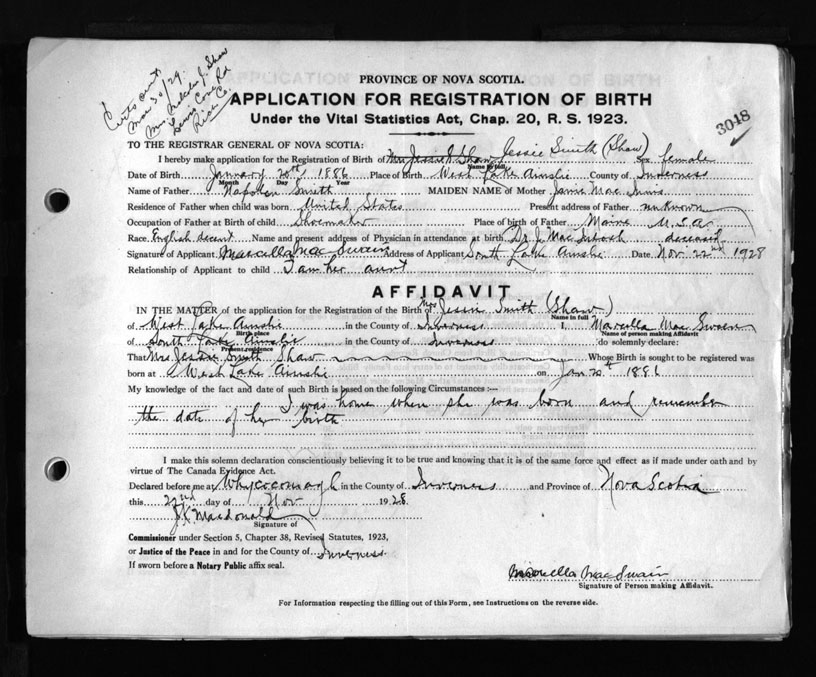 Certs out
Mar 30/29
Mrs. J. Shaw
Lewis Cove Rd
Rich. Co.
PROVINCE OF NOVA SCOTIA.
APPLICATION FOR REGISTRATION OF BIRTH
Under the Vital Statistics Act, Chap. 20, R. S. 1923.
3048
TO THE REGISTRAR GENERAL OF NOVA SCOTIA:
I hereby make application for the Registration of Birth of Mrs Jessie Shaw Jessie Smith (Shaw) Sex female
Name in full
Date of Birth January 20th 1886 Place of Birth West Lake Ainslie County of Inverness
Month Day Year
Name of Father Napoleon Smith MAIDEN NAME of Mother Janie Mac Innis
Residence of Father when child was born United States Present address of Father unknown
Occupation of Father at Birth of child Shoemaker Place of birth of Father Maine U.S.A.
Race English decent Name and present address of Physician in attendance at birth Dr J. MacIntosh deceased
Signature of Applicant Marcella Mac Swain Address of Applicant South Lake Ainslie Date Nov 22nd 1928
Relationship of Applicant to child I am her aunt
AFFIDAVIT
IN THE MATTER of the application for the Registration of the Birth of Mrs Jessie Smith (Shaw)
Name in full
of West Lake Ainslie in the County of Inverness I, Marcella Mac Swain
Birth place Name of person making Affidavit
of South Lake Ainslie in the County of Inverness do solemnly declare:
Present residence
That Mrs Jessie Smith Shaw Whose Birth is sought to be registered was
born at West Lake Ainslie on Jan 20th 1886
My knowledge of the fact and date of such Birth is based on the following Circumstances :—
I was home when she was born and remember
the date of her birth
I make this solemn declaration conscientiously believing it to be true and knowing that it is of the same force and effect as if made under oath and by
virtue of The Canada Evidence Act.
Declared before me at Whycocomagh in the County of Inverness and Province of Nova Scotia
this 22nd day of Nov 1928
J. K. Macdonald
Signature of
Commissioner under Section 5, Chapter 38, Revised Statutes, 1923,
or Justice of the Peace in and for the County of Inverness
If sworn before a Notary Public affix seal.
Marcella Mac Swain
Signature of Person making Affidavit.
For Information respecting the filling out of this Form, see Instructions on the reverse side.